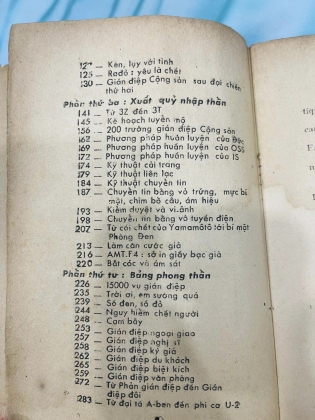 127 — Kèn, lụy vời tình
125 — Rađô : yêu là chết
130 — Gián điệp Cộng sản sau đại chiến
thứ hai
Phần thứ ba : Xuất quỷ nhập thần
141 — Từ 3Z đến 3T
145 — Kế hoạch tuyển mộ
156 — 200 trường gián điệp Cộng sản
162 — Phương pháp huấn luyện của Đức
169 — Phương pháp huấn luyện của OSS
172 — Phương pháp huấn luyện của IS
174 — Kỹ thuật cải trang
179 — Kỹ thuật liên lạc
184 — Kỹ thuật chuyển tin
187 — Chuyển tin bằng vô trứng, mực bí
mật, chim bồ câu, ám hiệu
193 — Kiểm duyệt và vi-ảnh
198 — Chuyển tin bằng vô tuyến điện
207 — Từ cái chết của Yamamôtô tới bí mật
Phòng Đen
213 — Làm căn cước giả
216 — AMT.F4 : sở in giấy bạc giả
220 — Bắt cóc và ám sát
Phần thứ tư : Bảng phong thần
226 — 15000 vụ gián điệp
235 — Trời ơi, em sướng quá
239 — Số đen, số đỏ
244 — Nguy hiểm chết người
248 — Cạm bẫy
253 — Gián điệp ngoại giao
257 — Gián điệp nghị sĩ
258 — Gián điệp ký giả
262 — Gián điệp du khách
265 — Gián điệp biệt kích
259 — Gián điệp văn phòng
272 — Từ Phản gián điệp đến Gián
điệp đôi
283 — Từ đại tá A-ben đến phi cơ U-2